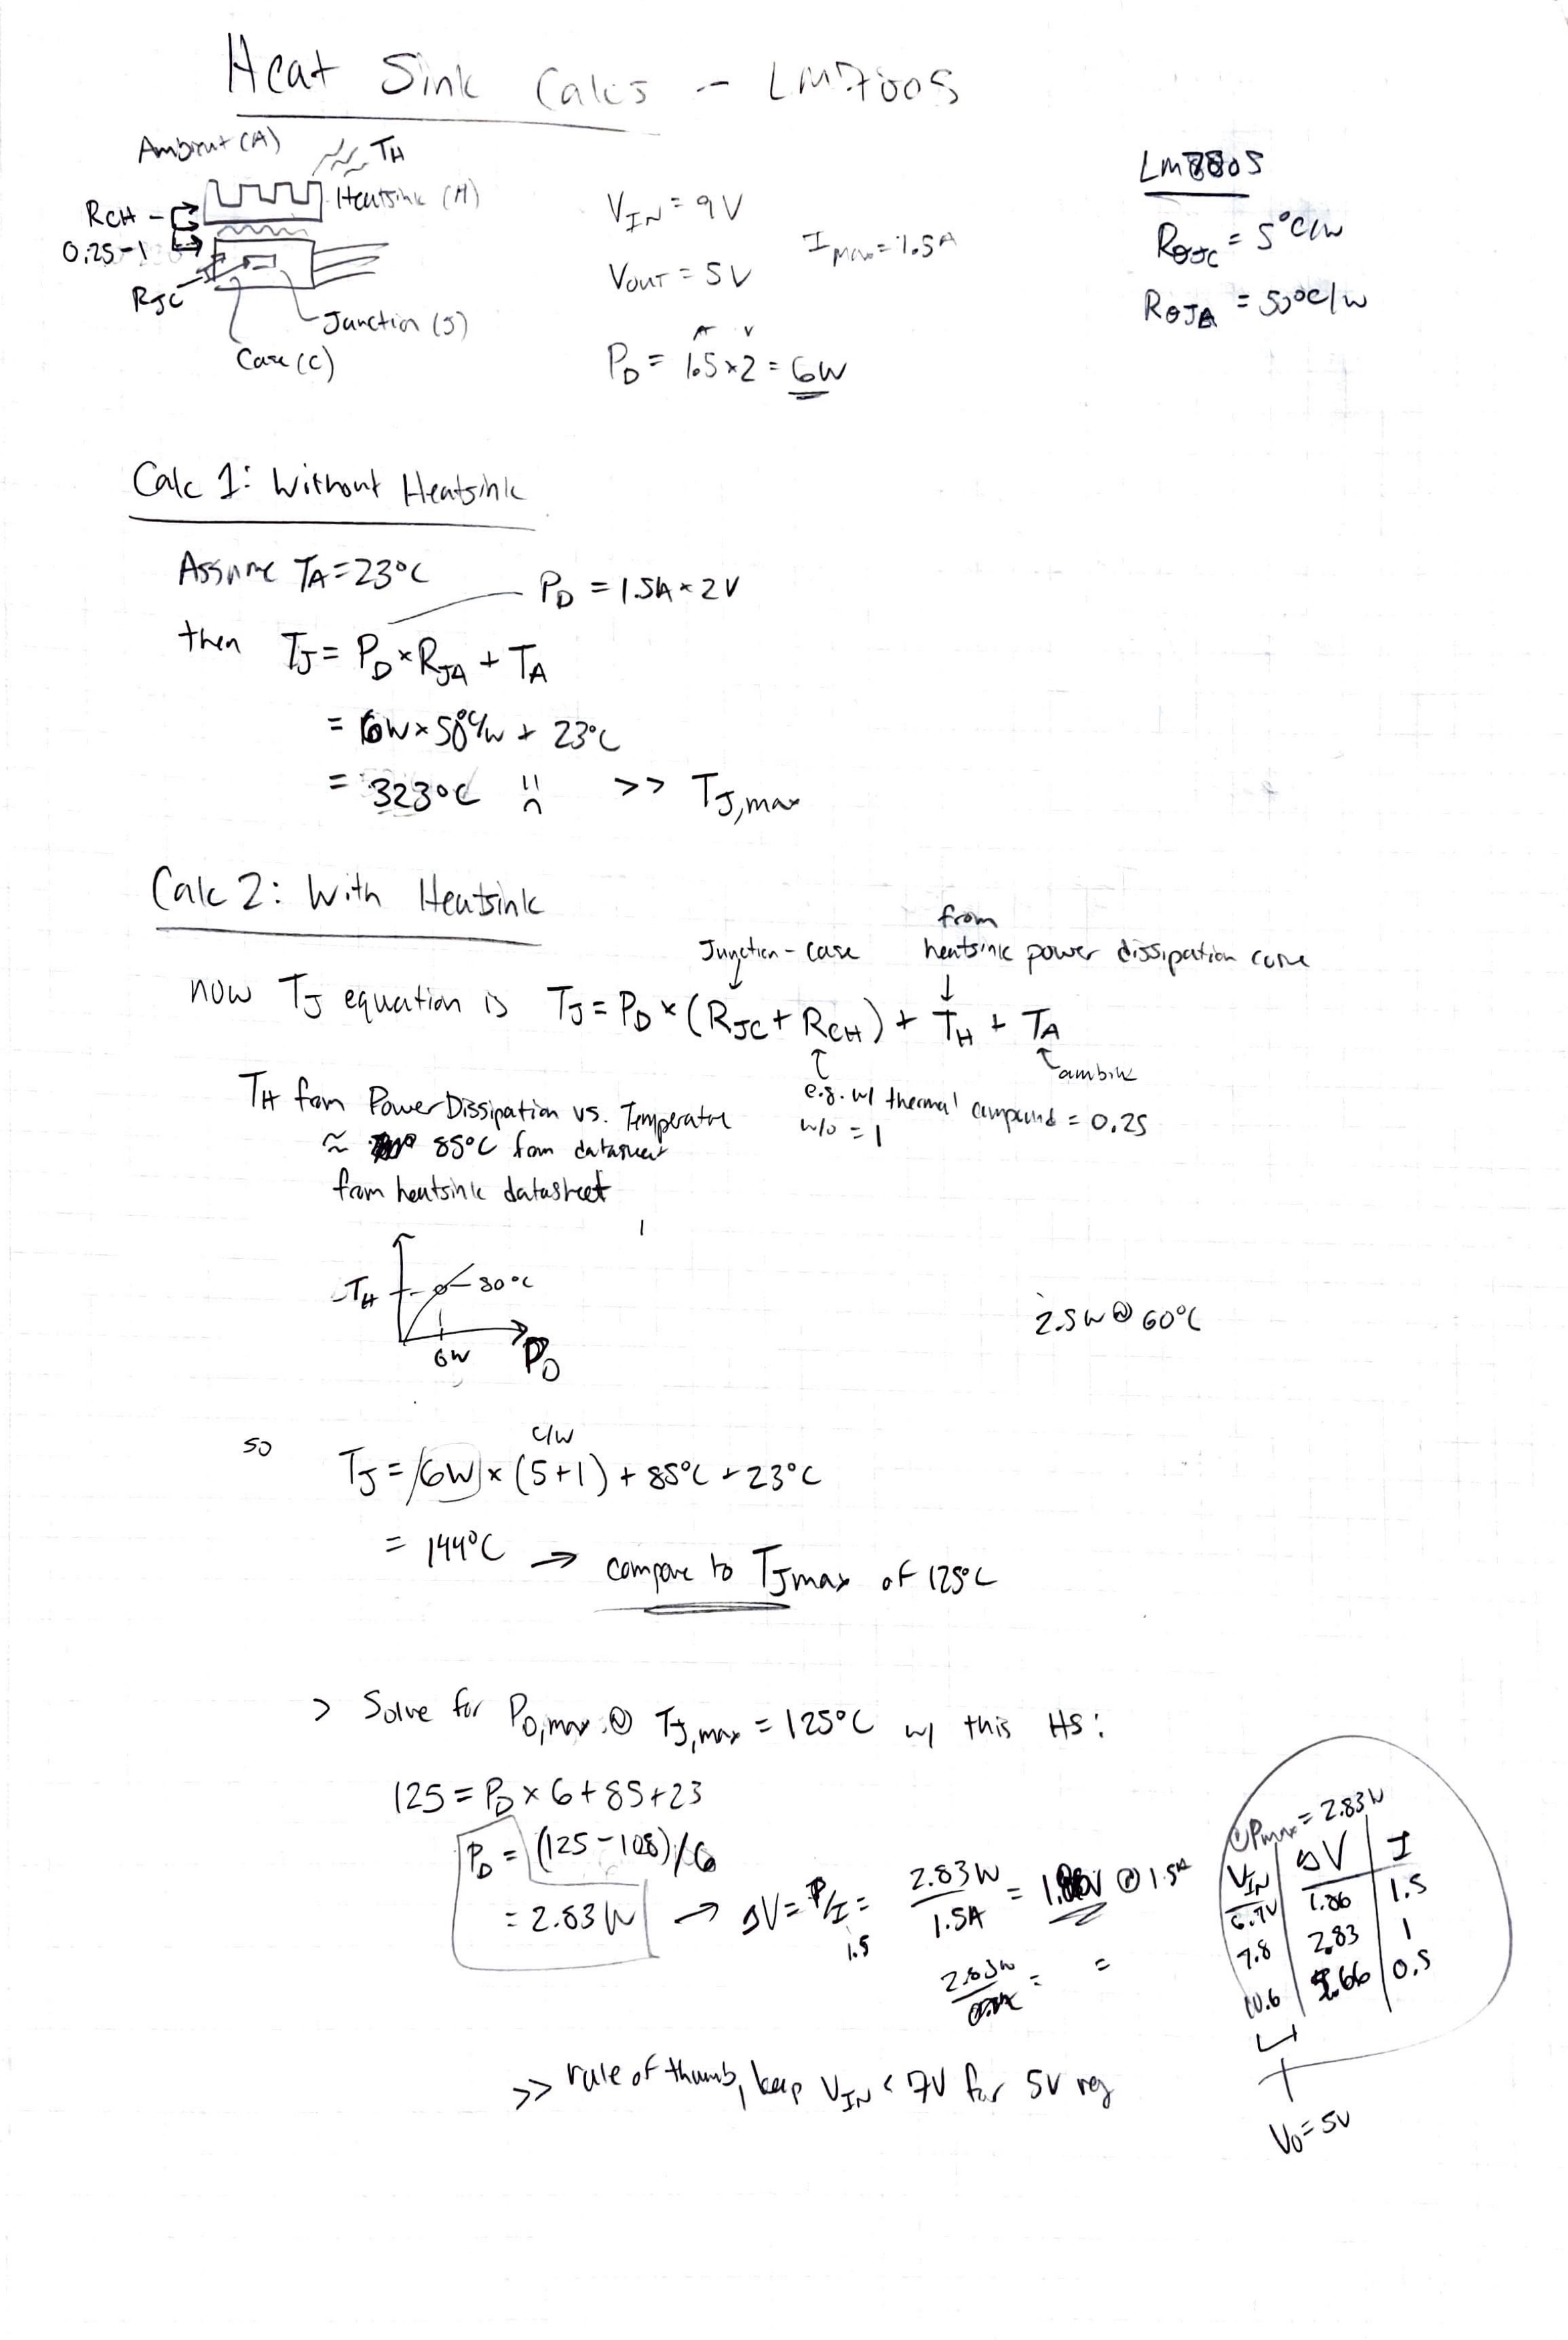 Heat Sink Calcs - LM7805
Ambient (A)
TH
Heatsink (H)
RCH
0.25-1
RJC
Junction (J)
Case (C)
VIN = 9V
VOUT = 5V
Imax = 1.5A
A V
PD = 1.5 × 2 = 6W
LM7805
RθJC = 5°C/W
RθJA = 50°C/W
Calc 1: Without Heatsink
Assume TA = 23°C
PD = 1.5A × 2V
then TJ = PD × RJA + TA
= 6W × 50°C/W + 23°C
= 323°C >> TJ,max
Calc 2: With Heatsink
Junction - case
from
heatsink power dissipation curve
now TJ equation is TJ = PD × (RJC + RCH) + TH + TA
ambient
e.g. w/ thermal compound = 0.25
w/o = 1
TH from Power Dissipation vs. Temperature
≈ 85°C from datasheet
from heatsink datasheet
TH
80°C
6W
PD
2.5W @ 60°C
so
C/W
TJ = 6W × (5+1) + 85°C + 23°C
= 144°C → compare to TJmax of 125°C
> Solve for PD,max @ TJ,max = 125°C w/ this HS:
125 = PD × 6 + 85 + 23
PD = (125 - 108)/6
= 2.83W → ΔV = P/I = 2.83W / 1.5A = @ 1.5A
1.5
2.83W =  =
@Pmax = 2.83W
VIN ΔV I
6.9V 1.86 1.5
7.8 2.83 1
10.6 5.66 0.5
Vo = 5V
>> rule of thumb, keep VIN < 7V for 5V reg